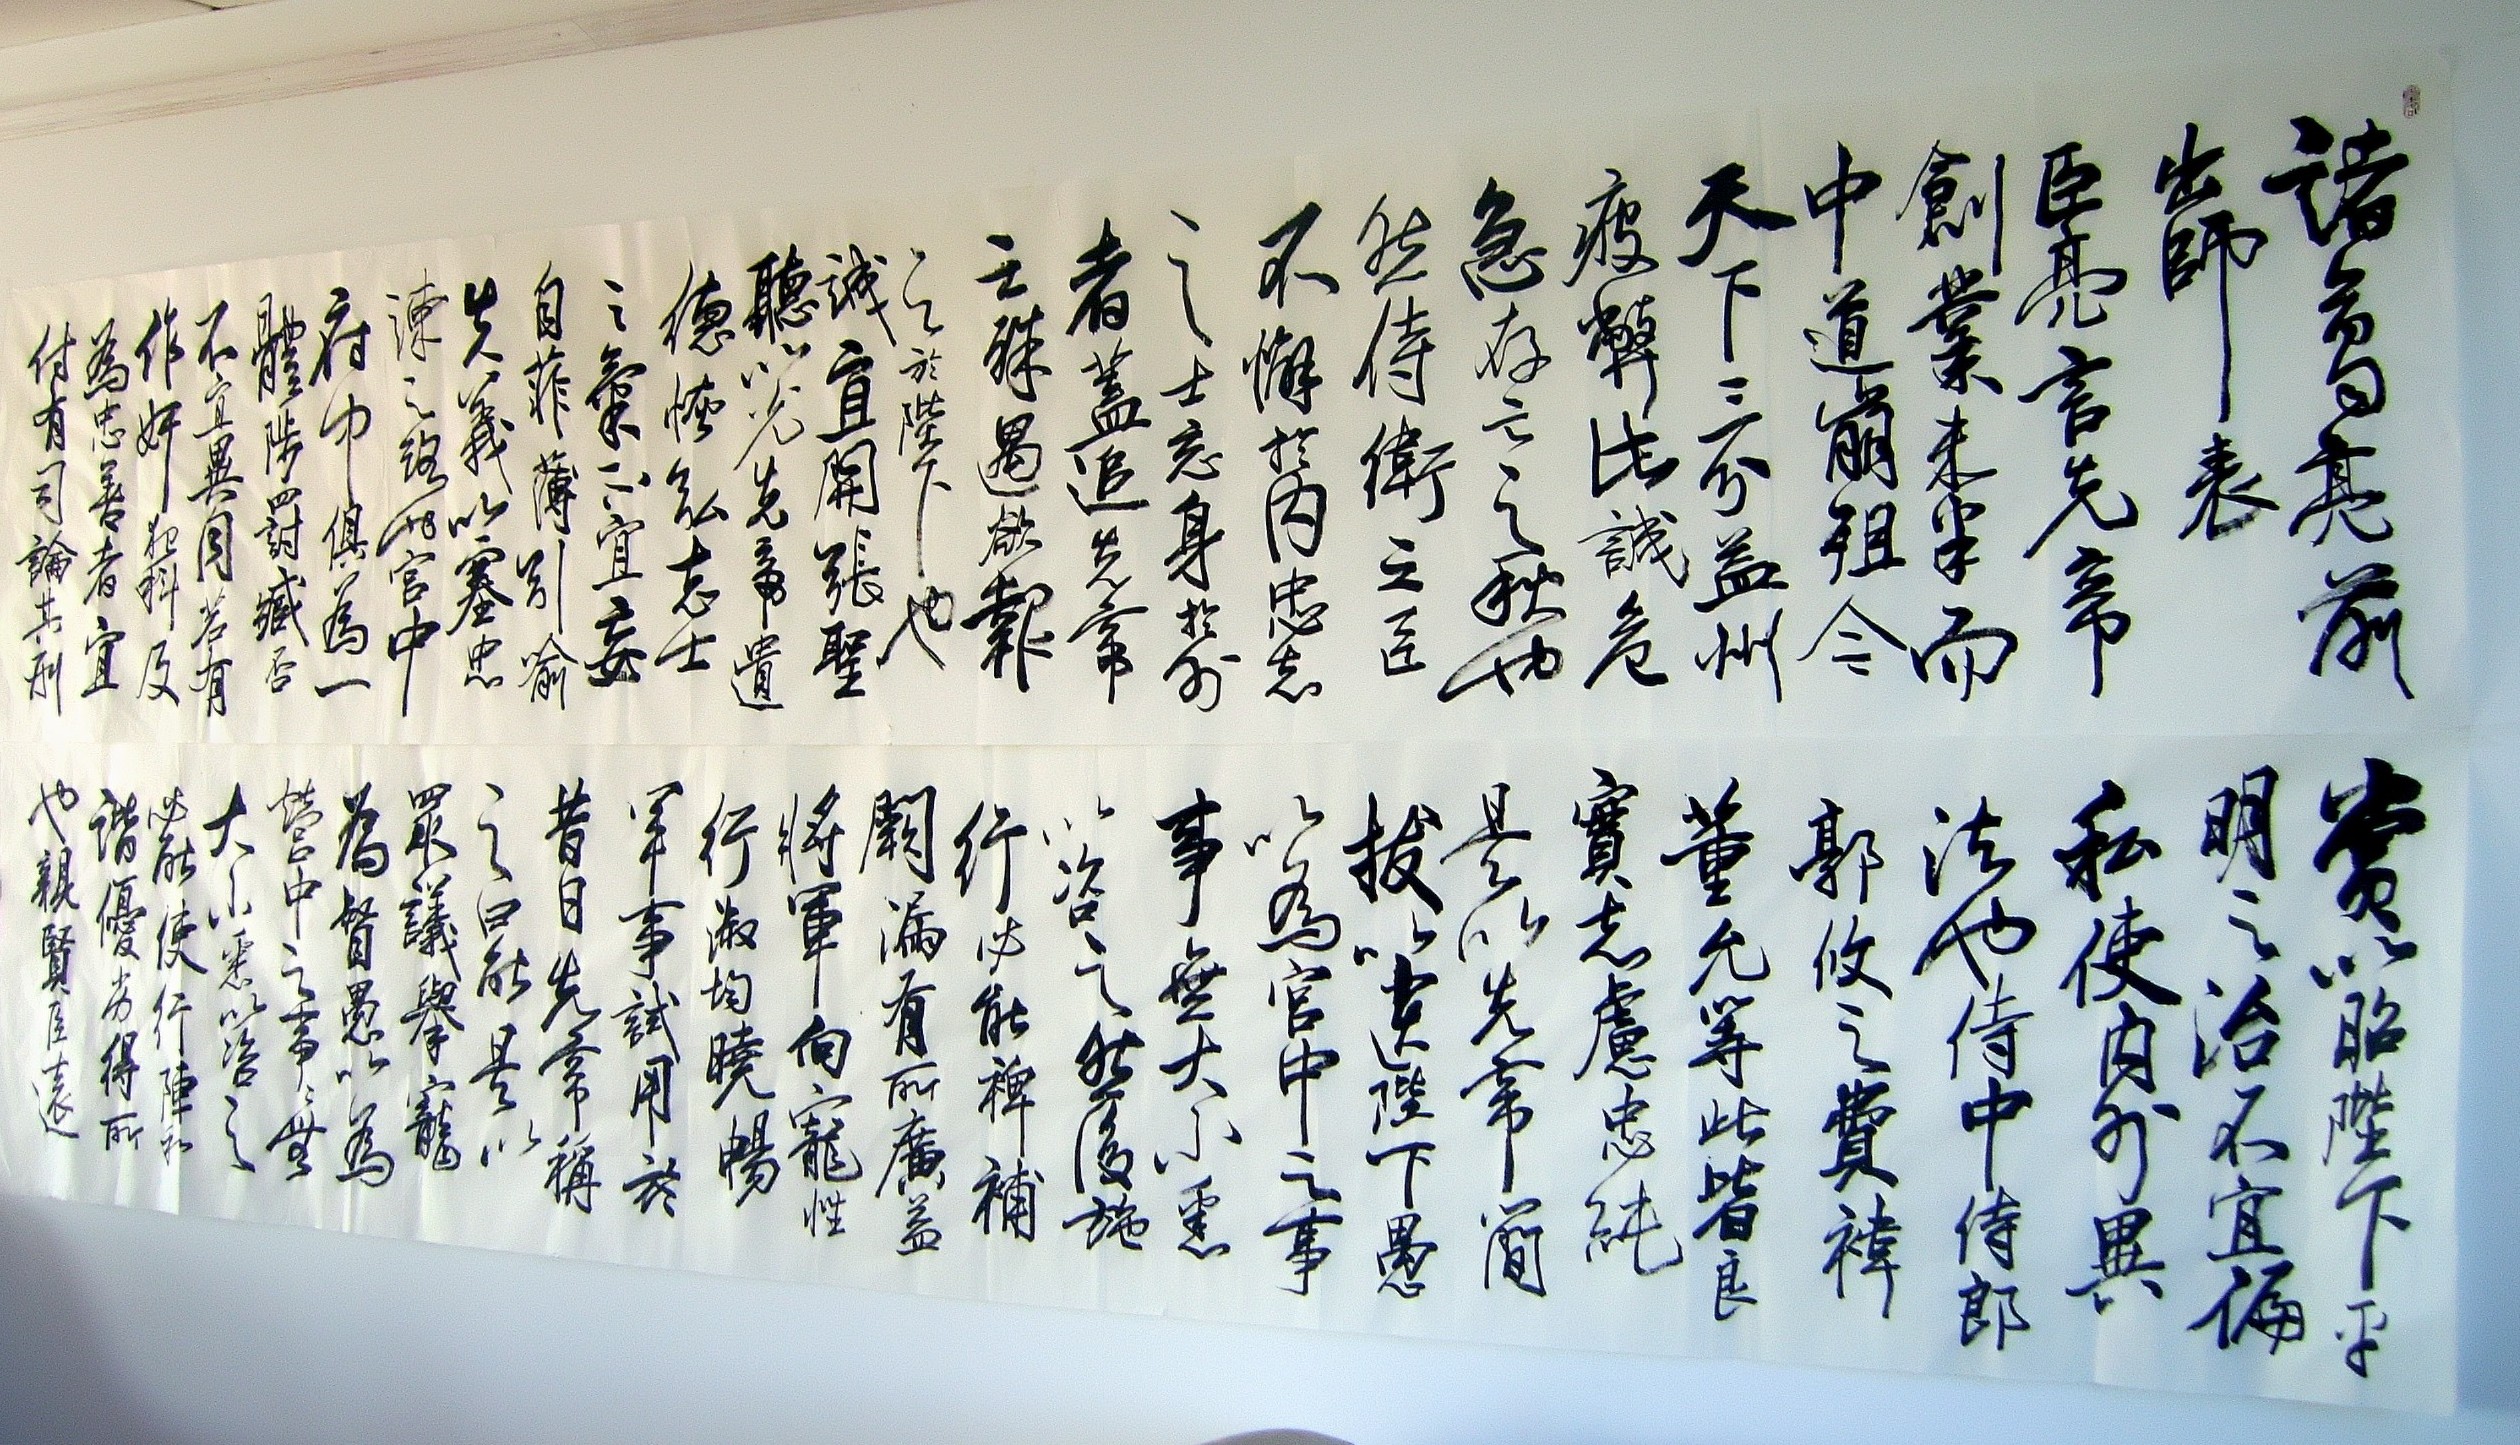 諸葛亮前
出師表
臣亮言先帝
創業未半而
中道崩殂今
天下三分益州
疲弊此誠危
急存亡之秋也
然侍衛之臣
不懈於内忠志
之士忘身於外
者蓋追先帝
之殊遇欲報
之於陛下也
誠宜開張聖
聽以光先帝遺
德恢弘志士
之氣不宜妄
自菲薄引喻
失義以塞忠
諫之路也宮中
府中俱為一
體陟罰臧否
不宜異同若有
作奸犯科及
為忠善者宜
付有司論其刑
賞以昭陛下平
明之治不宜偏
私使内外異
法也侍中侍郎
郭攸之費禕
董允等此皆良
實志慮忠純
是以先帝簡
拔以遺陛下愚
以為宮中之事
事無大小悉
以咨之然後施
行必能裨補
闕漏有所廣益
將軍向寵性
行淑均曉暢
軍事試用於
昔日先帝稱
之曰能是以
眾議舉寵
為督愚以為
營中之事々無
大小悉以咨之
必能使行陣和
諧優劣得所
也親賢臣遠